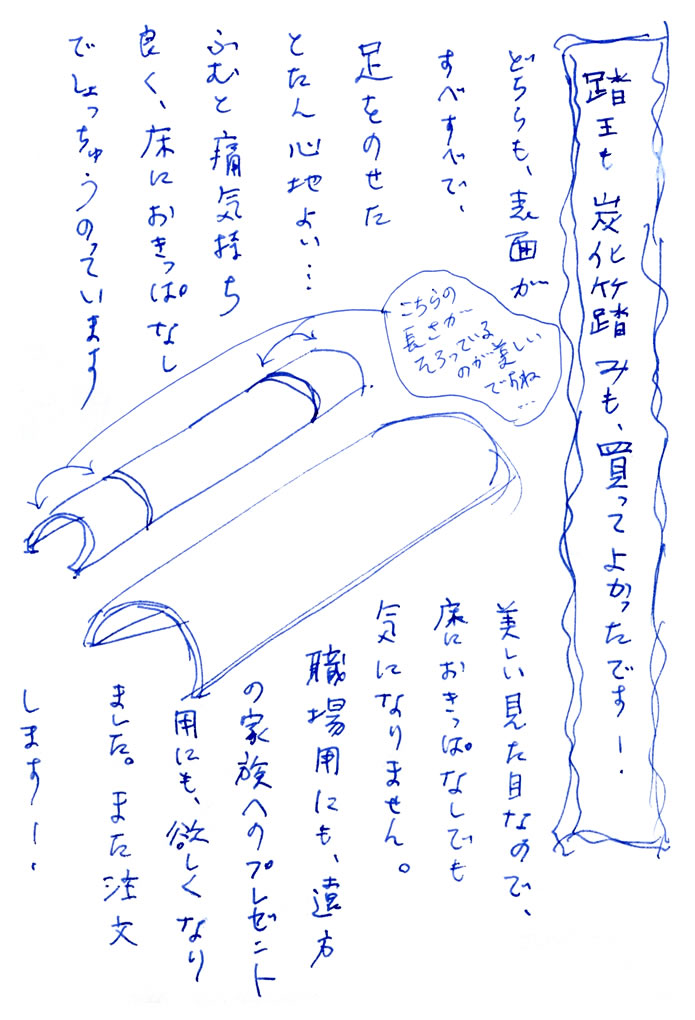 踏王も炭化竹踏みも、買ってよかったです!
どちらも、表面が
すべすべで、
足をのせた
とたん心地よい…
ふむと痛気持ち
良く、床におきっぱなし
でしょっちゅうのっています
こちらの
長さが
そろっている
のが美しい
ですね
…
美しい見た目なので、
床におきっぱなしでも
気になりません。
職場用にも、遠方
の家族へのプレゼント
用にも、欲しくなり
ました。また注文
します!